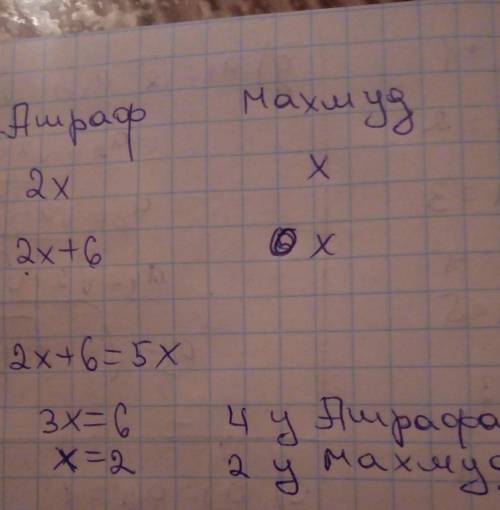 Ашраф Махмуд
2x x
2x+6 x
2x+6=5x
3x=6 4 у Ашрафа
x=2 2 у Махмуд